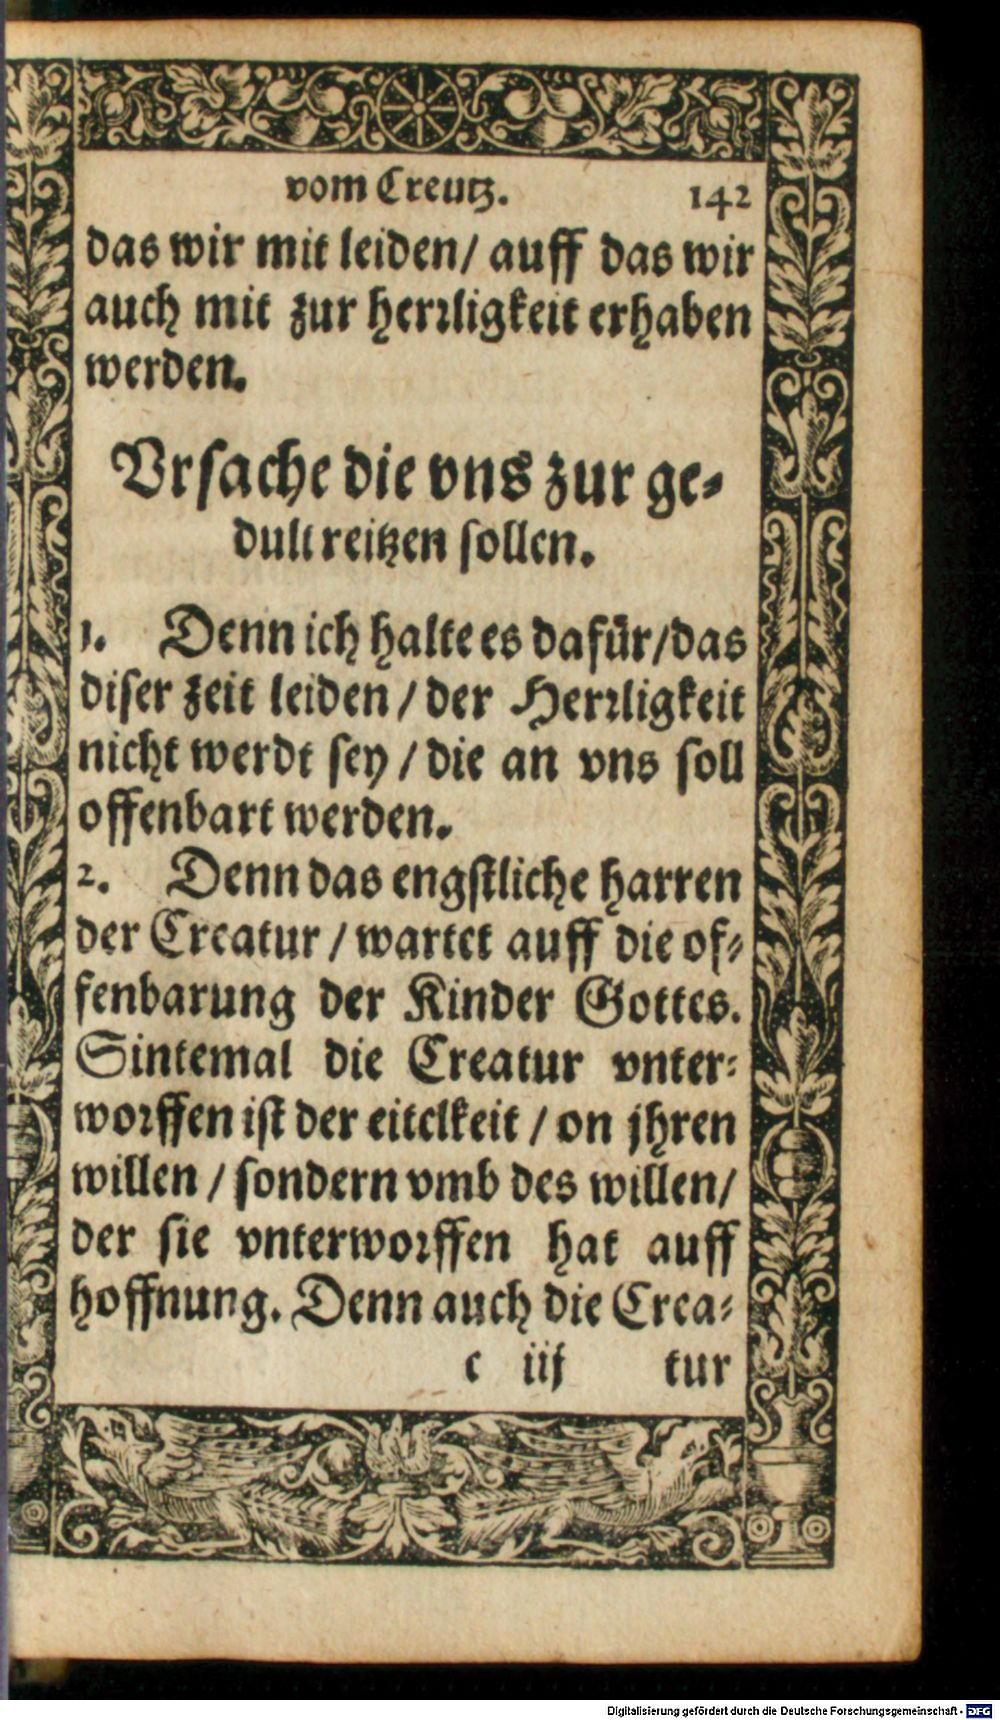 vom Creutz. 142
das wir mit leiden/ auff das wir
auch mit zur herꝛligkeit erhaben
werden.
Vrsache die vns zur ge⸗
dult reitzen sollen.
1. Denn ich halte es dafür/das
diser zeit leiden / der Herꝛligkeit
nicht werdt sey / die an vns soll
offenbart werden.
2. Denn das engstliche harren
der Creatur / wartet auff die of⸗
fenbarung der Kinder Gottes.
Sintemal die Creatur vnter⸗
woꝛffen ist der eitelkeit / on jhren
willen / sondern vmb des willen/
der sie vnterwoꝛffen hat auff
hoffnung. Denn auch die Crea⸗
c iij tur
Digitalisierung gefördert durch die Deutsche Forschungsgemeinschaft - DFG